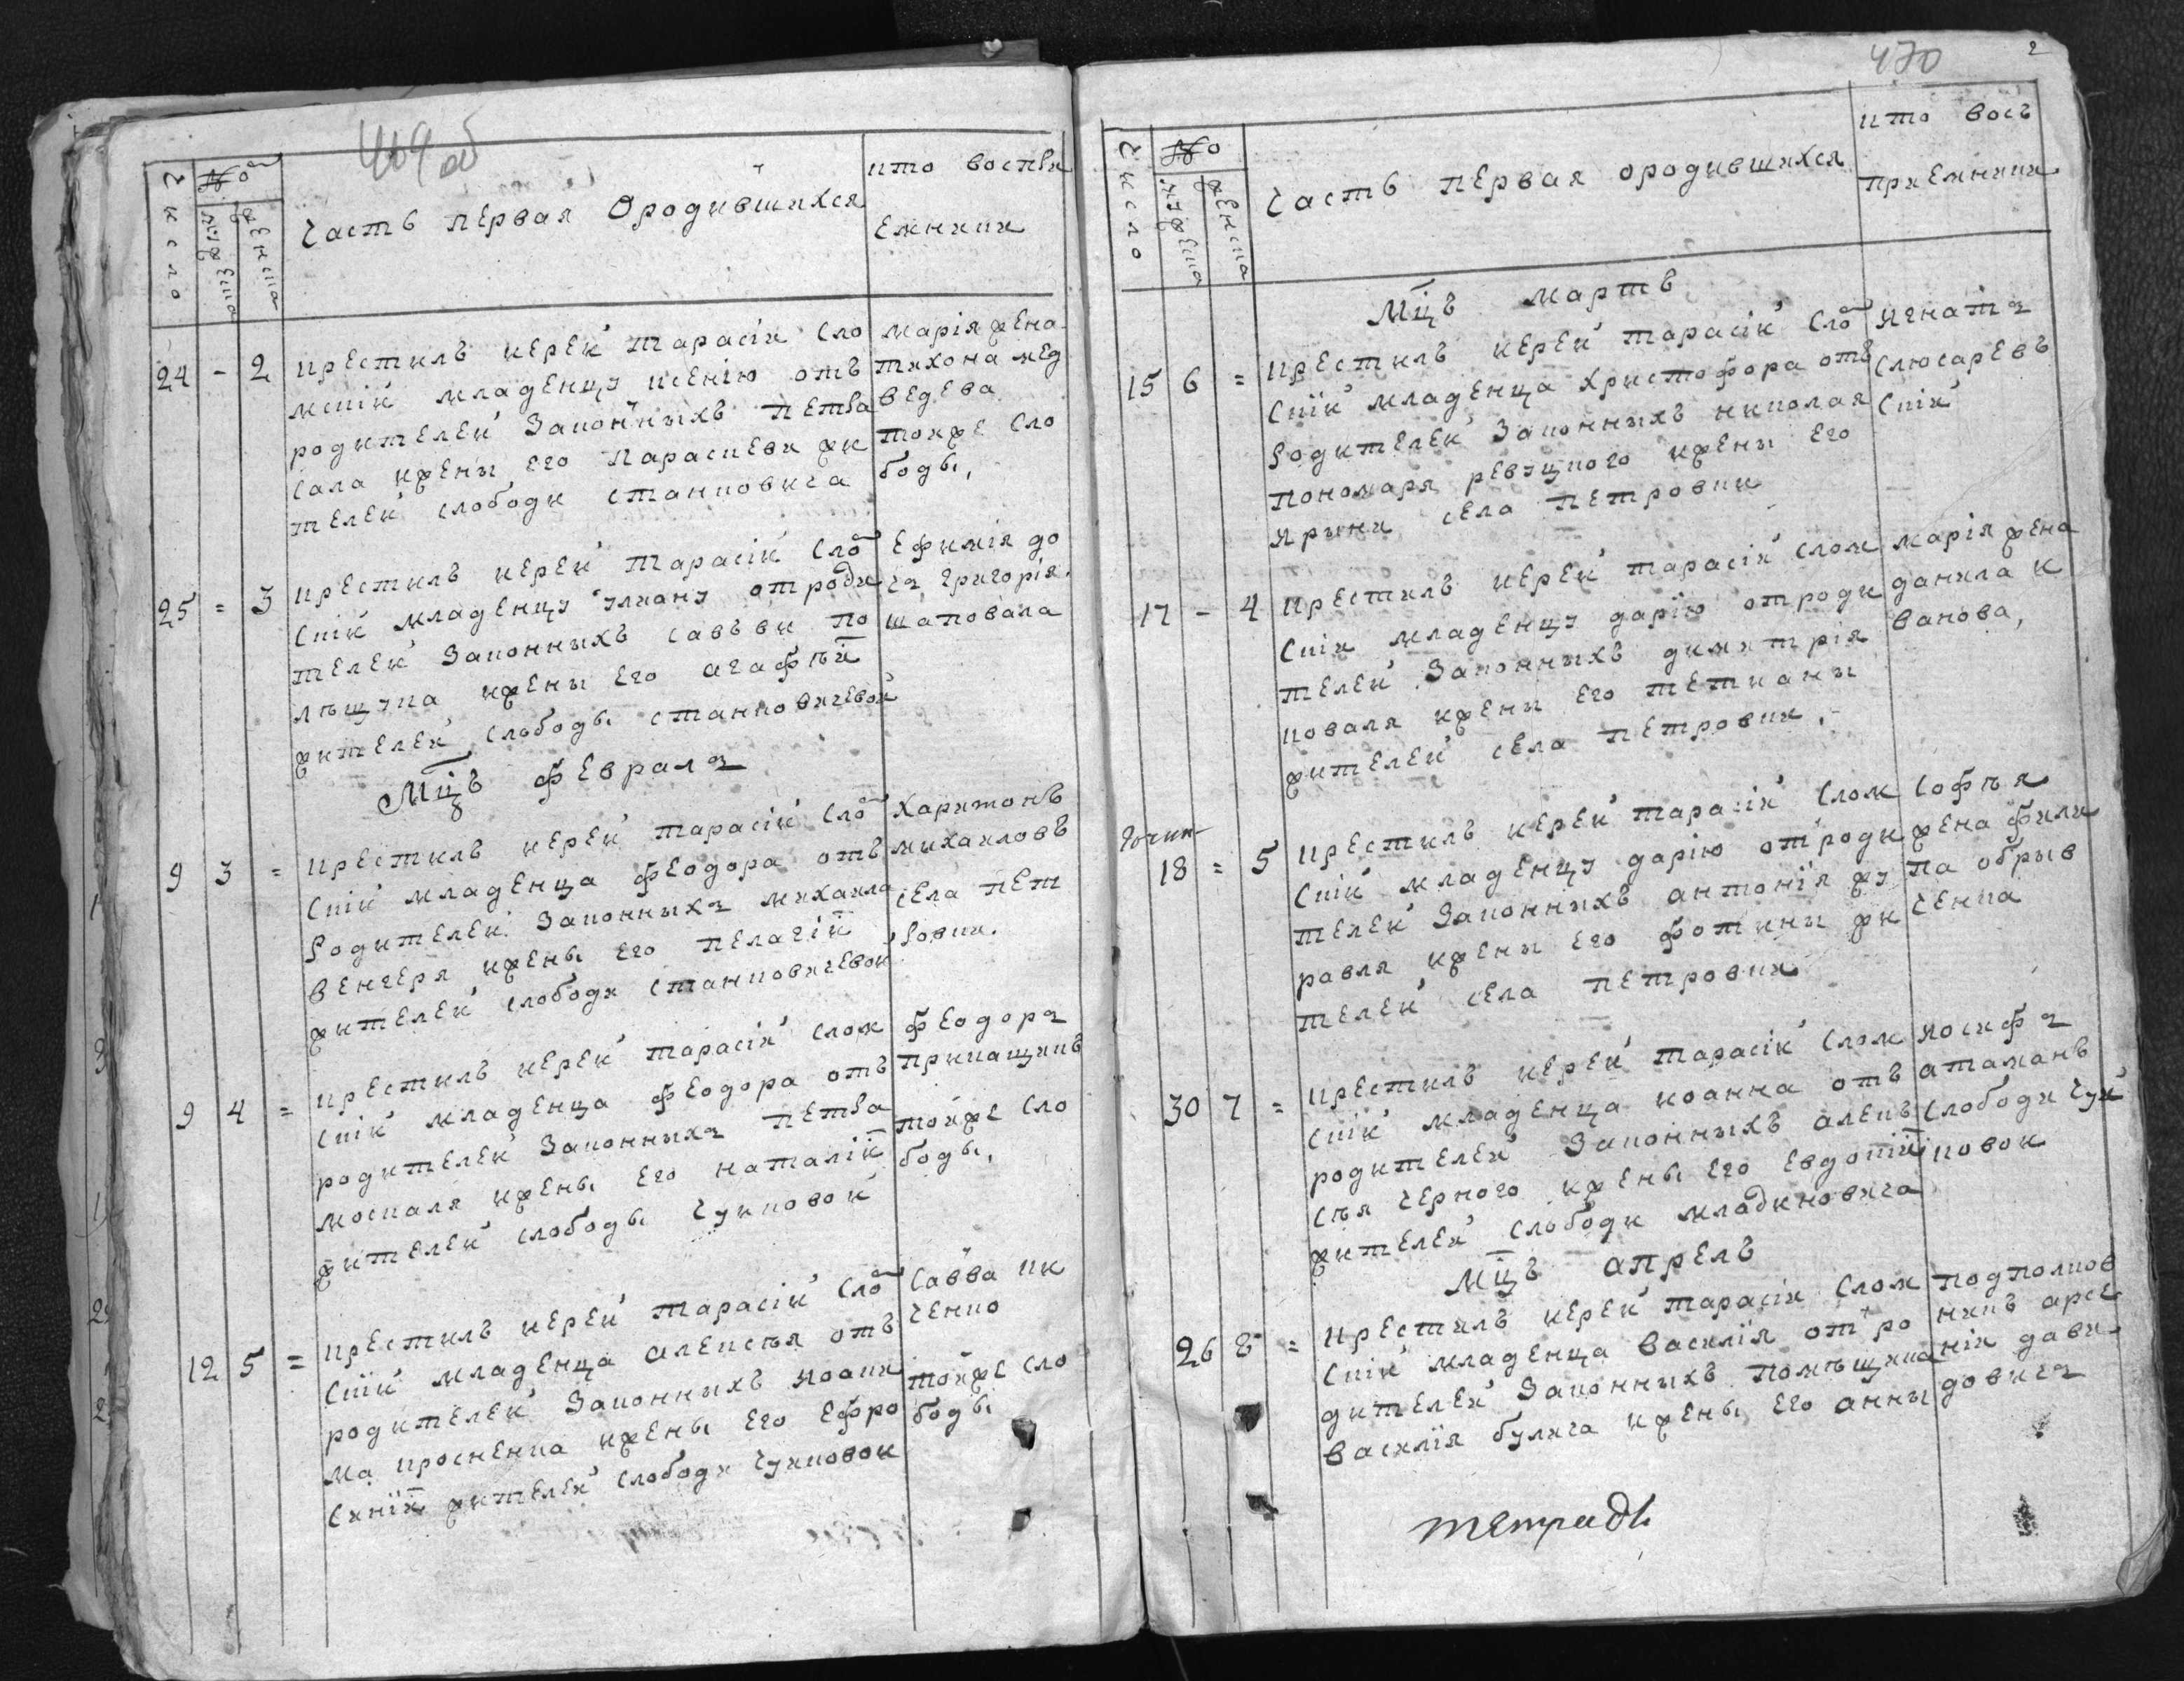 469 об
число
№
мужеска
женска
Часть первая О родившихся
кто воспри
емники
24 - 2
крестилъ иерей Тарасій Сло
мскій младенцу Ксенію отъ
родителей законныхъ Петра
Сала жены его Параскеви жи
телей слободи Станковича
Марія жена
Тихона Мед
ведева
тойже сло
боды,
25 = 3
крестилъ иерей Тарасій Сло
скій младенцу Улиану от роди
телей законныхъ Саввы По
лѣщука жены его Агафѣи
жителей слободы Станковичевой
Ефимія до
ч Григорія
Шаповала
Мцъ Февраль
9 3 =
крестилъ иерей Тарасій Сло
скій младенца Феодора отъ
родителей законныхъ Михаила
Венгеря жены его Пелагіи
жителей слободи Станковичевой
Харитонъ
Михаиловъ
села Пет
ровки.
9 4 =
крестилъ иерей Тарасій Слом
скій младенца Феодора отъ
родителей законныхъ Петра
Москаля жены его Наталіи
жителей слободы Чуйковой
Феодоръ
Прикащикъ
тойже сло
боды,
12 5 =
крестилъ иерей Тарасій Сло
скій младенца Алексѣя отъ
родителей законныхъ Иоаки
ма Проскенка жены его Ефро
синіи жителей слободи Чуйковой
Савва Ки
ченко
тойже сло
боды
470
2
число
№
мужеска
женска
Часть первая о родившихся
кто вос
приемники
Мцъ Мартъ
15 6 =
крестилъ иерей Тарасій Сло
скій младенца Христофора отъ
родителей законныхъ Николая
Пономаря ревуцкого жены его
Ирыни села Петровки
Игнатъ
Слюсаревъ
скій
17 - 4
крестилъ иерей Тарасій Слом
скій младенцу Дарію от роди
телей законныхъ Димитрія
Коваля жены его Тетианы
жителей села Петровки.
Марія жена
Данила И
ванова,
18 = 5
крестилъ иерей Тарасій Слом
скій младенцу Дарію от роди
телей законныхъ Антонія Жу
равля жены его Фотины жи
телей села Петровки
Софѣя
жена Фили
па Обрыв
ченка
30 7 =
крестилъ иерей Тарасій Слом
скій младенца Иоанна отъ
родителей законныхъ Алек
сѣя Черного жены его Евдокіи
жителей слободи Младиновича
Иосифъ
Атаманъ
слободи Чуй
ковой
Мцъ Апрель
26 8 =
крестилъ иерей Тарасій Слом
скій младенца Василія от ро
дителей законныхъ помѣщика
Василія Булича жены его Анны
подполков
никъ Арсе
ній Дави
довичъ
тетрадь